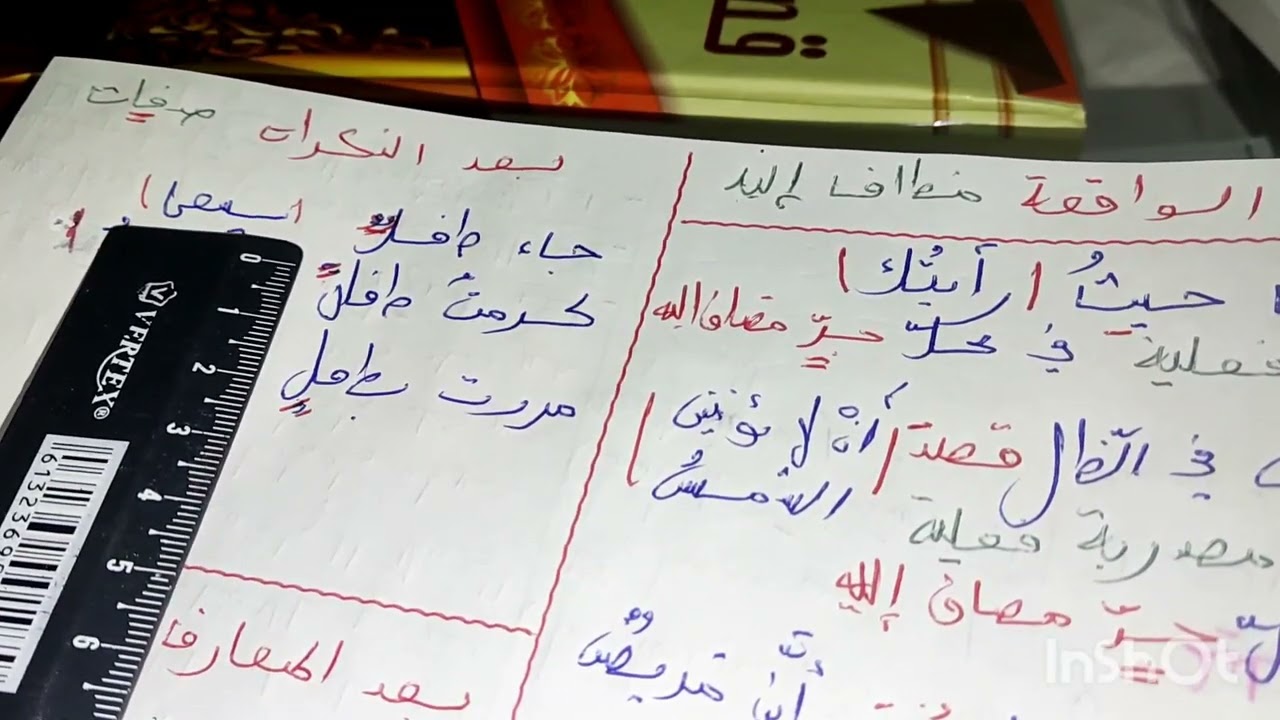 الواقعة مضاف إليه
حيثُ (رأيتُك)
فعلية في محلّ جرٍّ مضاف إليه
في الظّل قصدَ (أنْ لا تؤذيني
الشمسُ)
مصدرية فعلية
جرّ مضاف إليه
أنّ
بعد النكرات صفات
جاء طفلٌ (اسمعى)
كرمتُ طفلً
مررت بطفلٍ
بعد المعارف
VERTEX®
0
1
2
3
4
5
6
InShOt